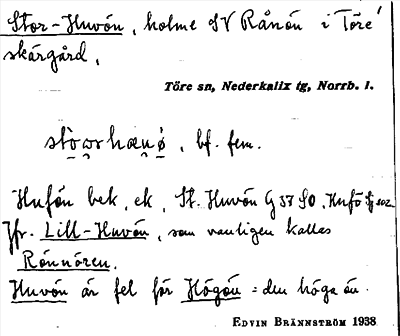 Stor-Huvön, holme SV Rånön i Töre
skärgård.
Töre sn, Nederkalix tg, Norrb. l.
bf. fem.
Hufön bek. ek. St. Huvön G 37 SO. Hufö
Jfr. Lill-Huvön, som vanligen kallas
Rönnören.
Huvön är fel för Högön = den höga ön.
EDVIN BRÄNNSTRÖM 1938